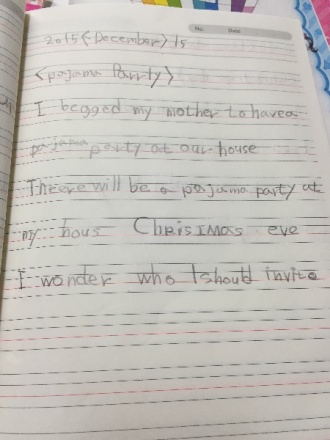 No.    Date
2015<December>15
<pajama Parrty>
I begged my mother to have a
pajama party at our house
Theere will be a pajama party at
my hous Chrisimas eve
I wonder who I should invite